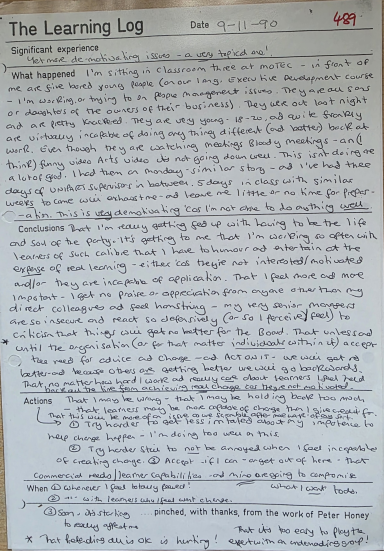 The Learning Log Date 9-11-90 489
Significant experience
Yet more de-motivating issues - a very topical one!
What happened I'm sitting in classroom three at MOTEC - in front of
me are five bored young people (on our long, Executive Development course
- I'm working or trying to on people management issues. They are all sons
or daughters of the owners of their business). They were out last night
and are pretty knackered. They are very young - 18-20, and quite frankly
are virtually incapable of doing any thing different (and better) back at
work. Even though they are watching meetings Bloody meetings - an (I
think) funny video Arts video its not going down well. This isn't doing me
a lot of good. I had them on Monday - similar story - and I've had three
days of supervisors in between. 5 days in class with similar
weeks to come will exhaust me - and leave me little or no time for prepar-
-ation. This is very demotivating 'cos I'm not able to do anything well
Conclusions That I'm really getting fed up with having to be the life
and soul of the party. It's getting to me that I'm working so often with
learners of such calibre that I have to humour and entertain at the
expense of real learning - either 'cos they're not interested/motivated
and/or they are incapable of application. That I feel more and more
impotent - I get no praise or appreciation from anyone other than my
direct colleagues and feel - my very senior managers
are so insecure and react so defensively (or so I perceive/feel) to
criticism that things will get no better for the Board. That unless and
* until the organisation (or for that matter individuals within it) accept
the need for advice and change - and Act on it - we will get no
better - and because others are getting better we will go backwards.
That, no matter how hard I work and really care about learners I feel held
back all the time from achieving real change
Actions That I may be wrong - that I may be holding back too much,
- that learners may be more capable of change than I give credit for.
That this will be more of an issue
① Try harder to get less irritated about my impotence to
help change happen - I'm doing too well on this.
② Try harder still to not be annoyed when I feel incapable
of creating change. ③ Accept - if I can - or get out of here - that
Commercial needs/learner capabilities - and mine are going to compromise
what I want to do.
When ① Whenever I feel bloody peeved!
② " - with learners who I feel won't change.
③ Soon, and starting pinched, with thanks, from the work of Peter Honey
to really affect me That its too easy to play the
* That is OK is hurting! expert with an undemanding group!